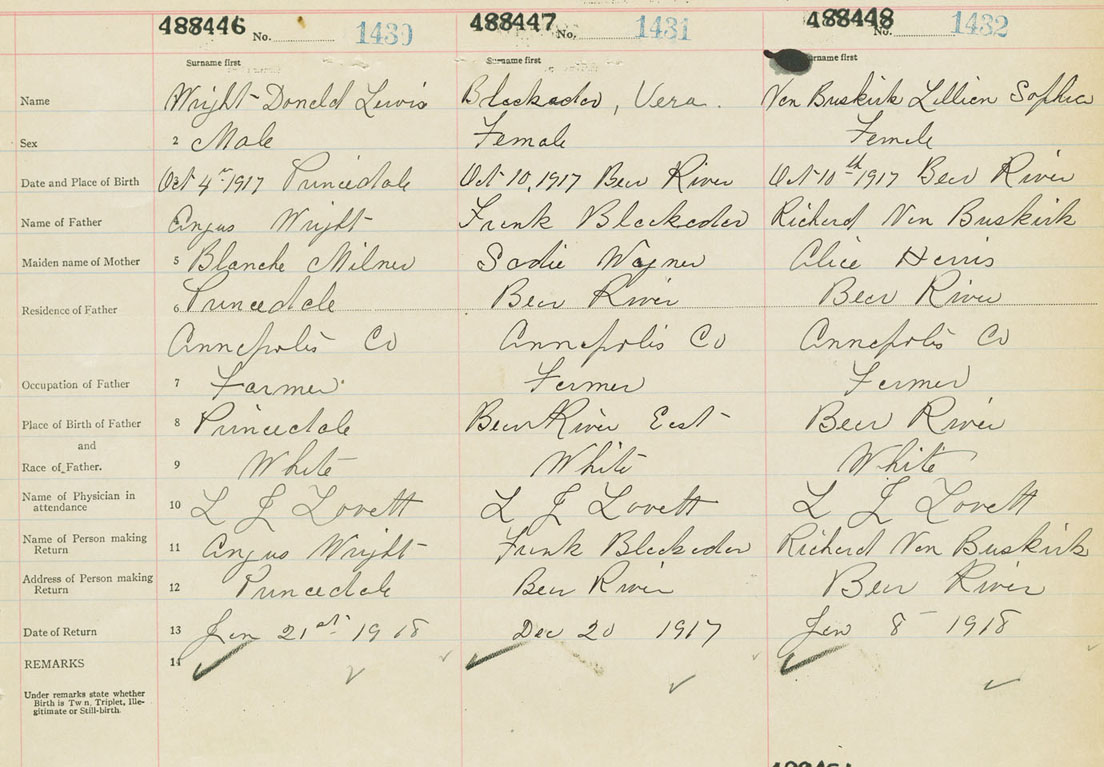 488446 No. 1430 488447 No. 1431 488448 No. 1432
Surname first Surname first Surname first
Name Wright Donald Lewis Blackader, Vera. Van Buskirk Lillian Sophia
Sex 2 Male Female Female
Date and Place of Birth Oct 4th 1917 Princedale Oct 10, 1917 Bear River Oct 10th 1917 Bear River
Name of Father Angus Wright Frank Blackader Richard Van Buskirk
Maiden name of Mother 5 Blanche Milner Sadie Wagner Alice Harris
Residence of Father 6 Princedale Bear River Bear River
Annapolis Co Annapolis Co Annapolis Co
Occupation of Father 7 Farmer Farmer Farmer
Place of Birth of Father 8 Princedale Bear River East Bear River
and
Race of Father. 9 White White White
Name of Physician in attendance 10 L J Lovett L J Lovett L J Lovett
Name of Person making Return 11 Angus Wright Frank Blackader Richard Van Buskirk
Address of Person making Return 12 Princedale Bear River Bear River
Date of Return 13 Jan 21st 1918 Dec 20 1917 Jan 8 1918
REMARKS 14
Under remarks state whether
Birth is Twn. Triplet, Ille-
gitimate or Still-birth.